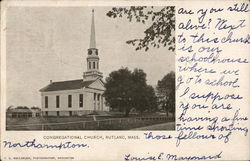 are you still
alive? Next
to this church
is our
schoolhouse
where we
go to school.
I suppose
you are
having a fine
time showing
those fellows of
CONGREGATIONAL CHURCH, RUTLAND, MASS.
Northampton.
Louise E. Maynard